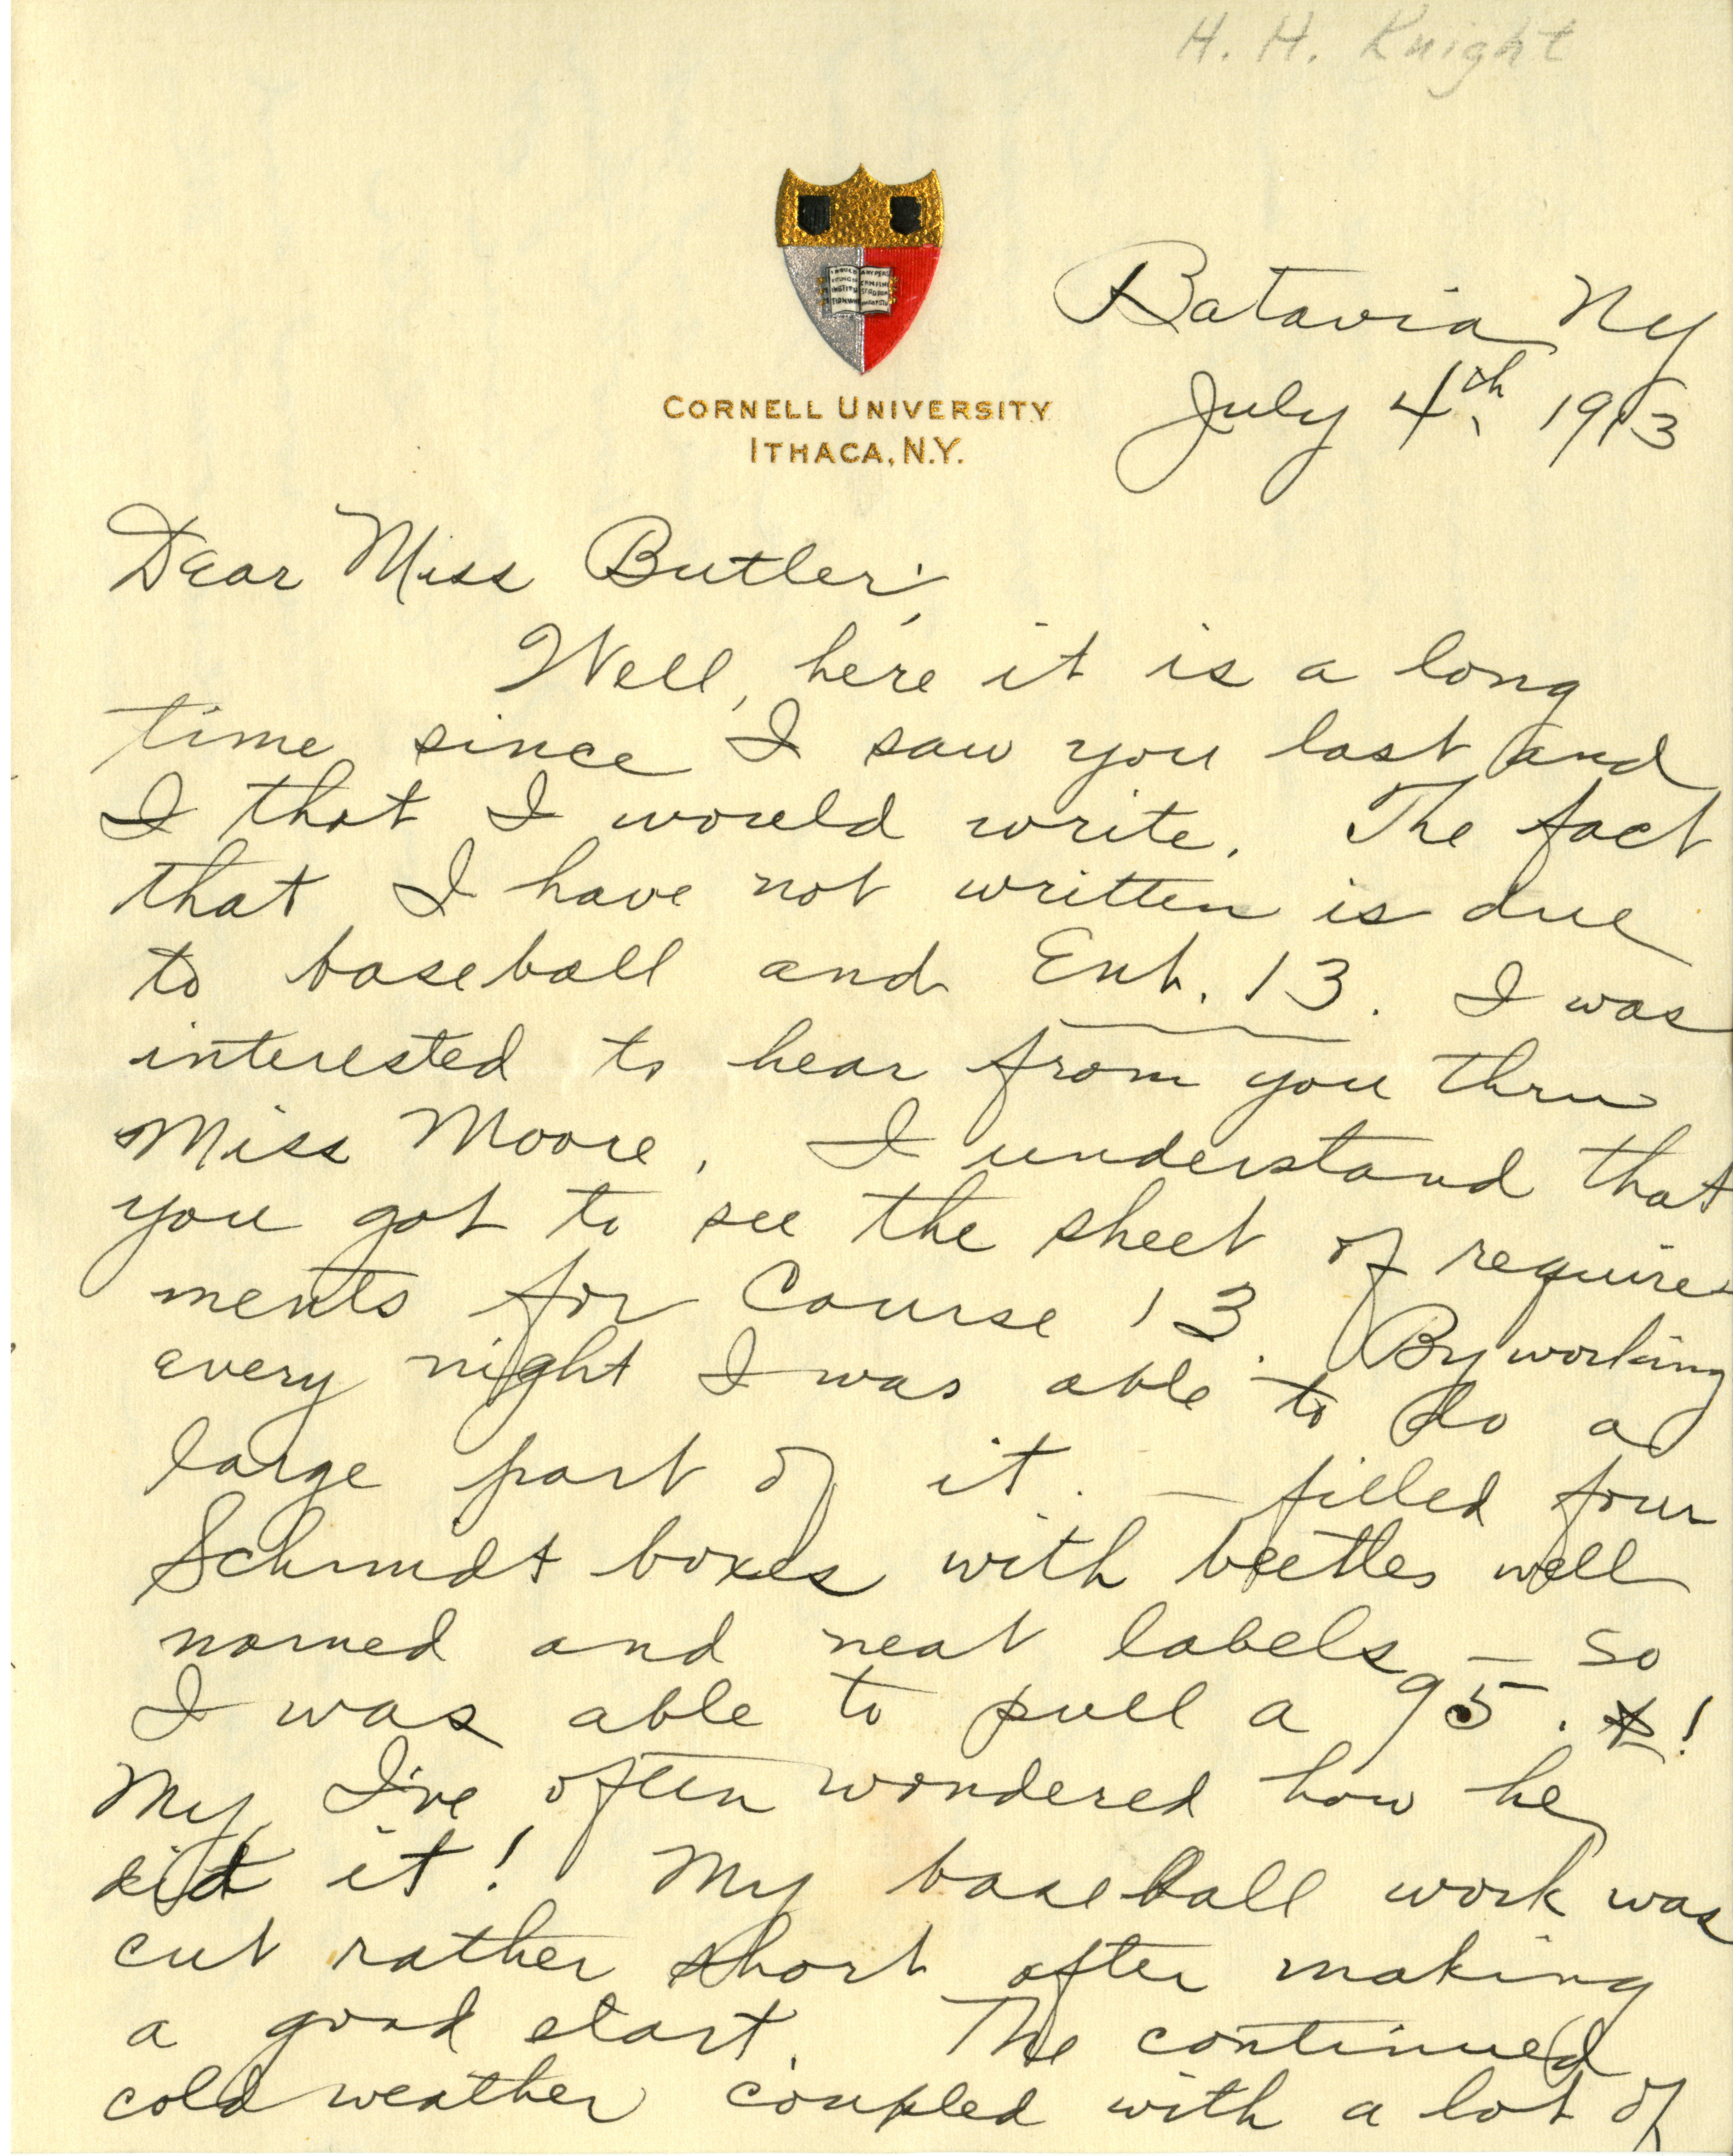 H. H. Knight
CORNELL UNIVERSITY
ITHACA, N.Y.
Batavia NY
July 4th, 1913
Dear Miss Butler;
Well, here it is a long
time since I saw you last and
I that I would write. The fact
that I have not written is due
to baseball and Ent. 13. I was
interested to hear from you thru
Miss Moore. I understand that
you got to see the sheet of require-
ments for Course 13. By working
every night I was able to do a
large part of it. — filled four
Schmidt boxes with beetles well
named and neat labels — so
I was able to pull a 95. !
My, I've often wondered how he
did it! My baseball work was
cut rather short after making
a good start. The continued
cold weather coupled with a lot of